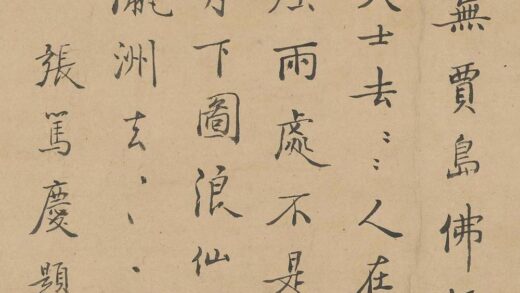 無賈島佛
士去⺀⺀人在
雨處不是
下圖浪仙
瀛洲去、、、
張篤慶題